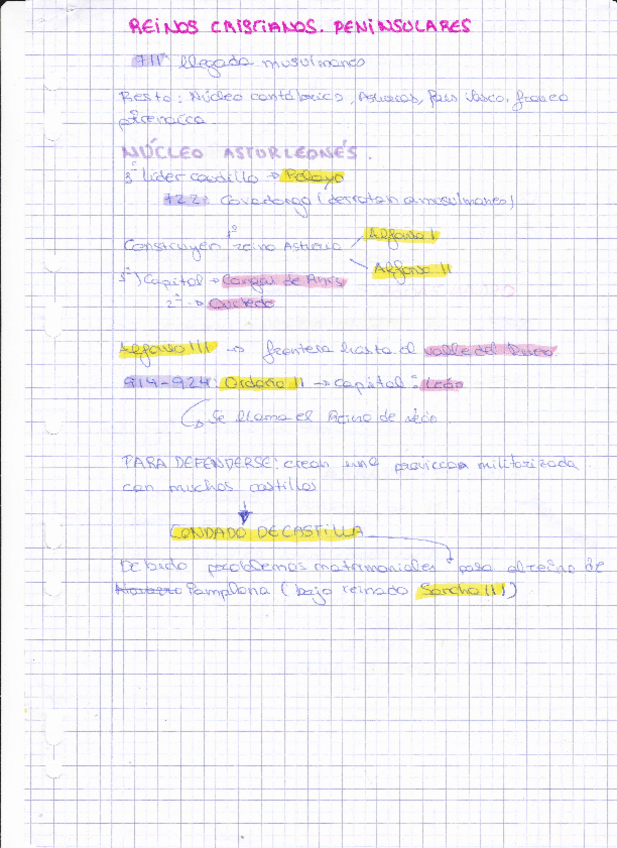 REINOS CRISTIANOS. PENINSULARES
711: llegada musulmanes
Resto: Núcleo cantábrico, Asturias, País Vasco, franco
pirenaica.
NÚCLEO ASTURLEONÉS.
líder caudillo → Pelayo
722: Covadonga (derrotan a musulmanes)
Construyen 1º reino Astur Alfonso I
Alfonso II
1º) Capital → Cangas de Onís
2º → Oviedo
Alfonso III → frontera hasta el valle del Duero.
914-924: Ordoño II → capital: León
Se llama el Reino de León.
PARA DEFENDERSE: crean una provincia militarizada
con muchos castillos
CONDADO DE CASTILLA
Debido problemas matrimoniales pasa al reino de
Pamplona (bajo reinado Sancho III)